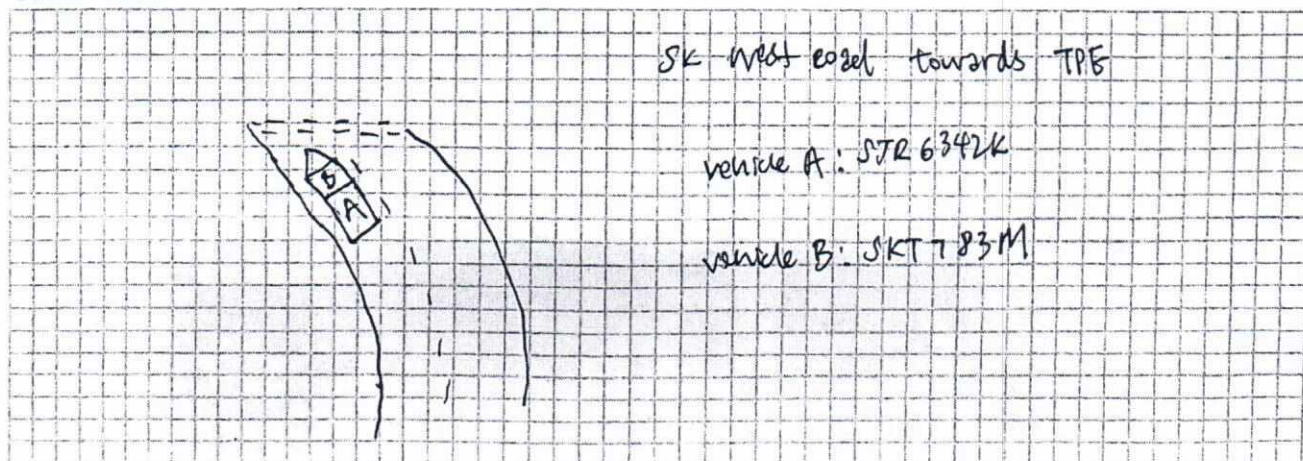 SK West road towards TPE
vehicle A: SJR6342K
B
A
vehicle B: SKT783M